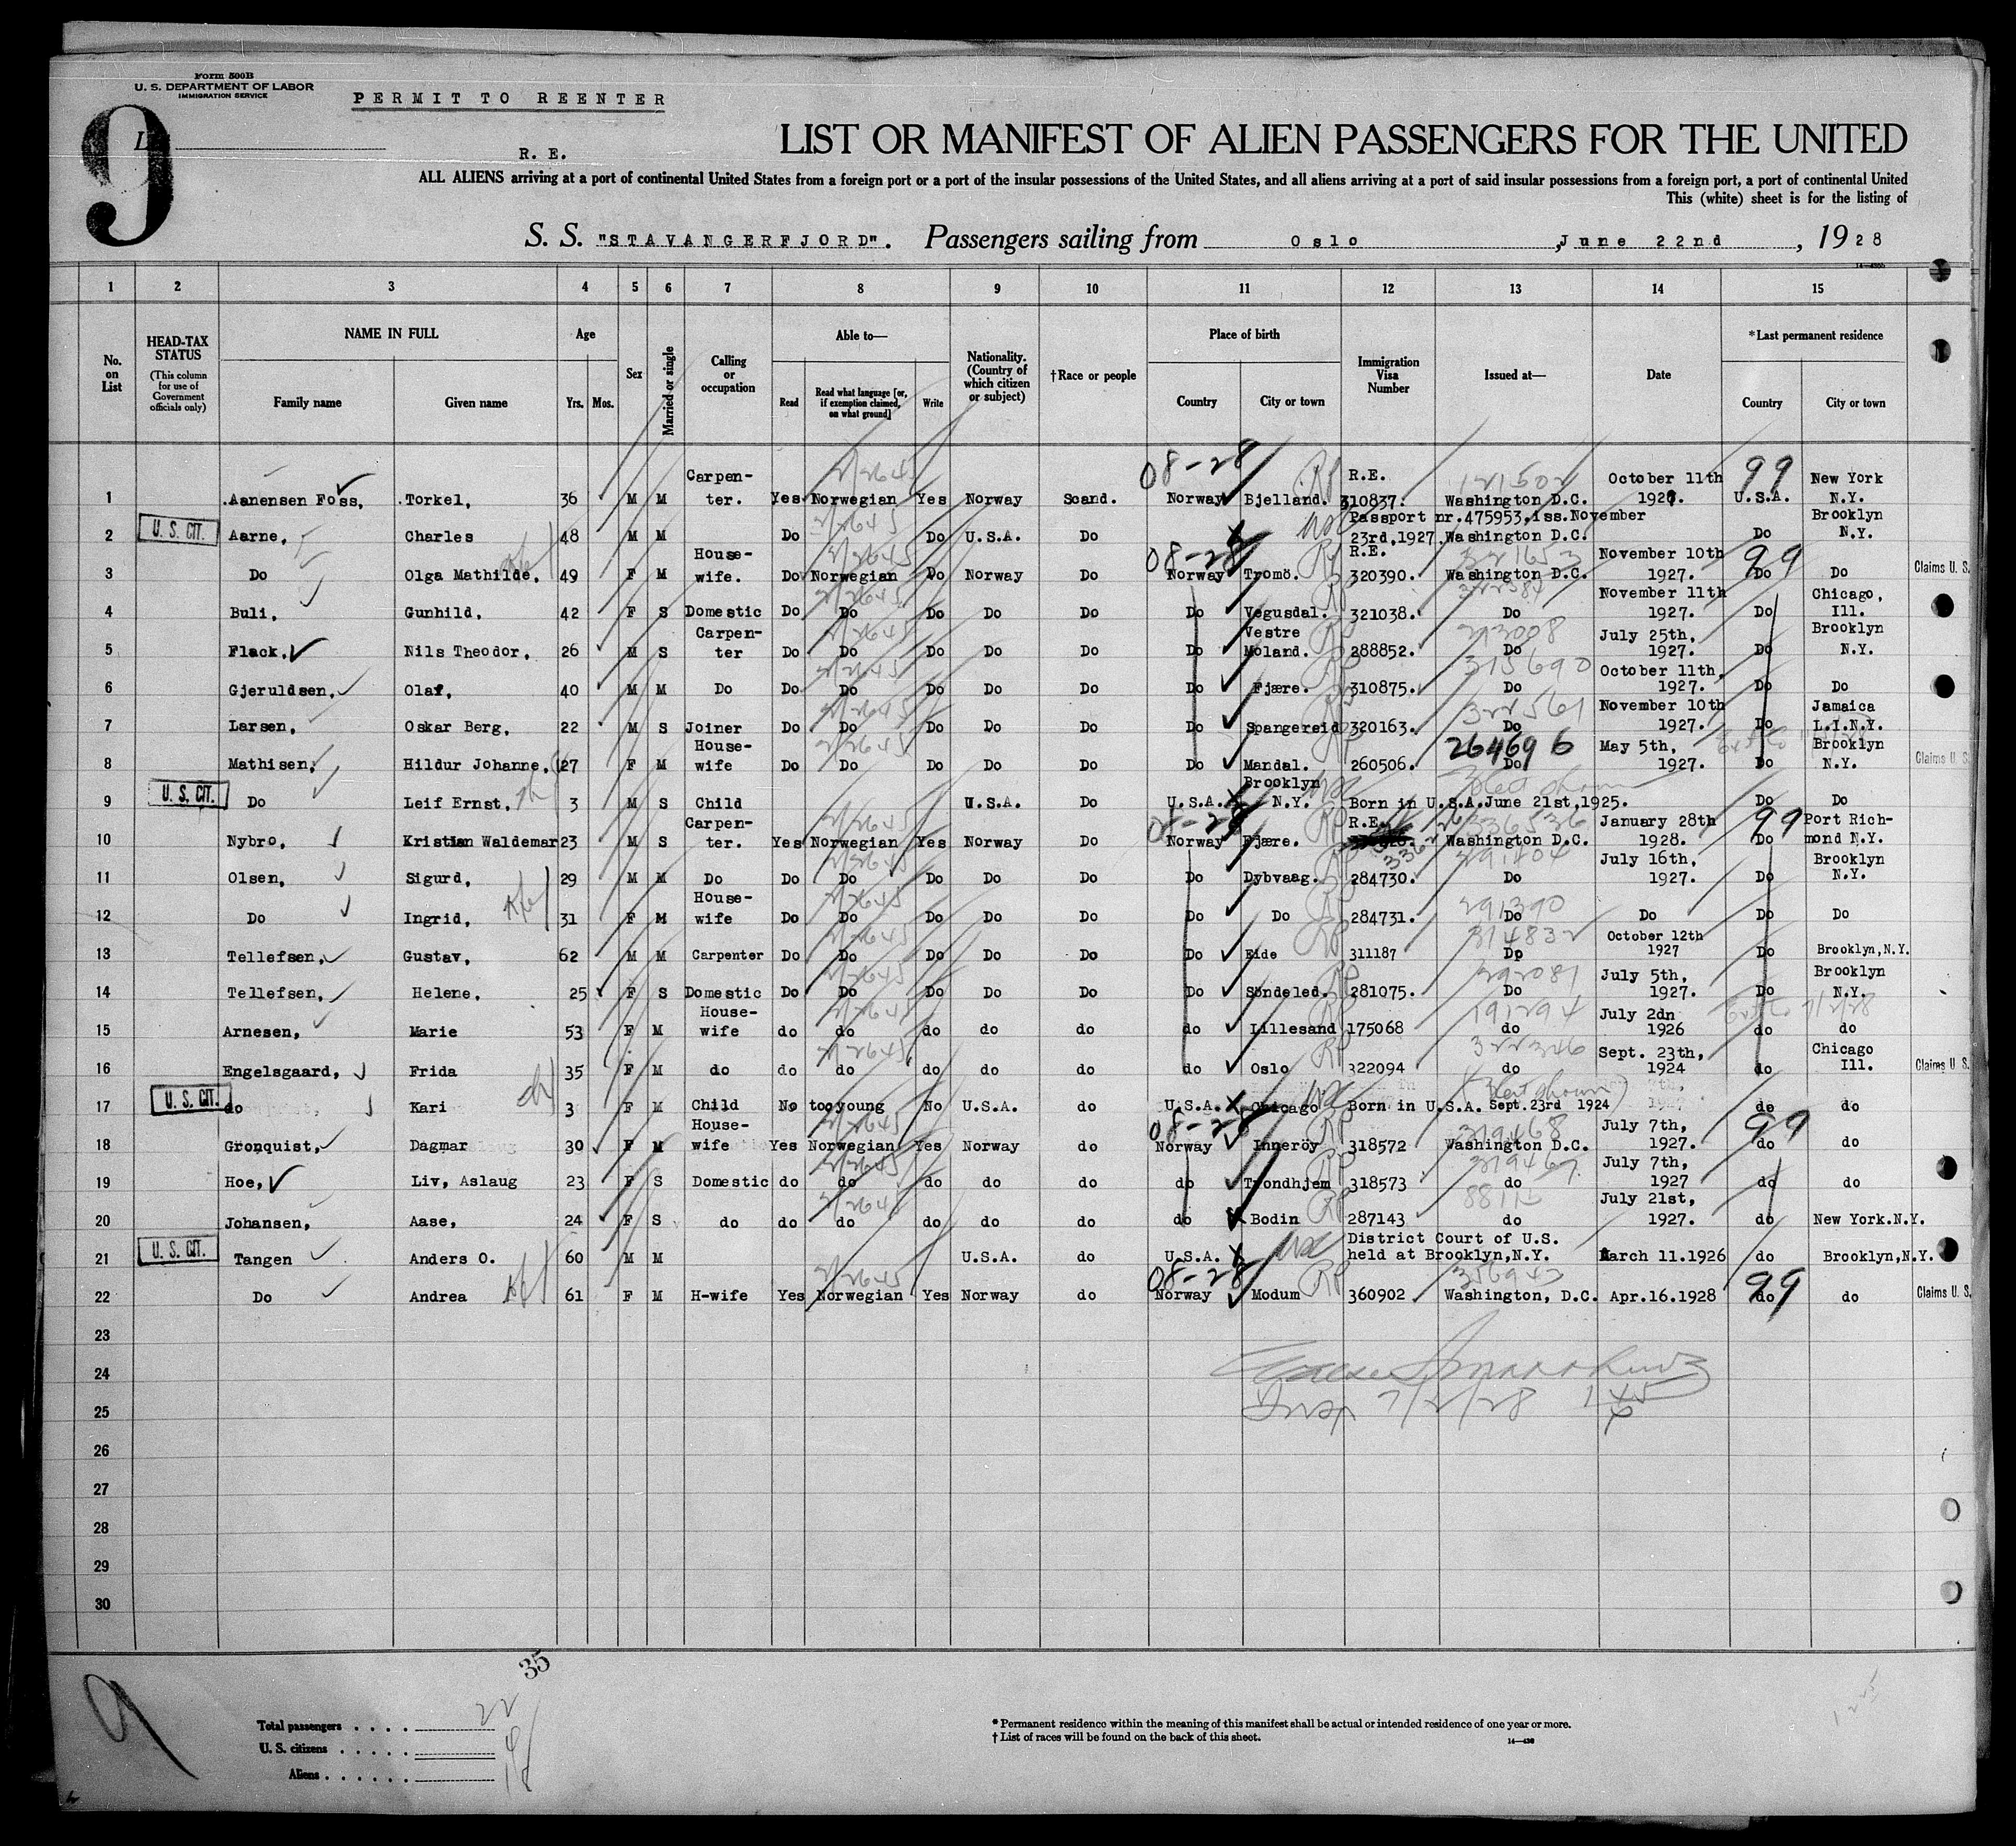 Form 500B
U. S. DEPARTMENT OF LABOR
IMMIGRATION SERVICE
PERMIT TO REENTER
9
R. E.
LIST OR MANIFEST OF ALIEN PASSENGERS FOR THE UNITED
ALL ALIENS arriving at a port of continental United States from a foreign port or a port of the insular possessions of the United States, and all aliens arriving at a port of said insular possessions from a foreign port, a port of continental United
This (white) sheet is for the listing of
S. S. "STAVANGERFJORD". Passengers sailing from Oslo, June 22nd, 1928
1 2 3 4 5 6 7 8 9 10 11 12 13 14 15
No. on List
HEAD-TAX STATUS (This column for use of Government officials only)
NAME IN FULL
Family name Given name
Age
Yrs. Mos.
Sex
Married or single
Calling or occupation
Able to—
Read Read what language [or, if exemption claimed, on what ground] Write
Nationality. (Country of which citizen or subject)
† Race or people
Place of birth
Country City or town
Immigration Visa Number
Issued at—
Date
* Last permanent residence
Country City or town
1 Aanensen Foss, Torkel, 36 M M Carpen-ter. Yes Norwegian Yes Norway Scand. 08-28 Norway Bjelland. R.E. 310837. Washington D.C. October 11th 1927. 99 U.S.A. New York N.Y.
2 U. S. CIT. Aarne, Charles 48 M M Do Do U.S.A. Do Passport nr.475953, iss.November 23rd,1927, Washington D.C. Do Brooklyn N.Y.
3 Do Olga Mathilde, 49 F M House-wife. Do Norwegian Do Norway Do 08-28 Norway Tromö. R.E. 320390. Washington D.C. November 10th 1927. 99 Do Do Claims U. S.
4 Buli, Gunhild, 42 F S Domestic Do Do Do Do Do Do Vegusdal. 321038. Do November 11th 1927. Do Chicago, Ill.
5 Flack, Nils Theodor, 26 M S Carpen-ter Do Do Do Do Do Do Vestre Moland. 288852. Do July 25th, 1927. Do Brooklyn N.Y.
6 Gjeruldsen, Olaf, 40 M M Do Do Do Do Do Do Do Fjære. 310875. 315690 Do October 11th, 1927. Do Do
7 Larsen, Oskar Berg, 22 M S Joiner Do Do Do Do Do Do Spangereid 320163. 322561 Do November 10th 1927. Do Jamaica L.I.N.Y.
8 Mathisen, Hildur Johanne, 27 F M House-wife Do Do Do Do Do Do Mandal. 260506. 264696 Do May 5th, 1927. Do Brooklyn N.Y. Claims U. S.
9 U. S. CIT. Do Leif Ernst, 3 M S Child U.S.A. Do U.S.A. Brooklyn N.Y. Born in U.S.A. June 21st,1925. Do Do
10 Nybro, Kristian Waldemar 23 M S Carpen-ter. Yes Norwegian Yes Norway Do 08-28 Norway Fjære. R.E. Washington D.C. January 28th 1928. 99 Do Port Rich-mond N.Y.
11 Olsen, Sigurd, 29 M M Do Do Do Do Do Do Do Dybvaag. 284730. 291404 Do July 16th, 1927. Do Brooklyn N.Y.
12 Do Ingrid, 31 F M House-wife Do Do Do Do Do Do Do 284731. 291390 Do Do Do Do
13 Tellefsen, Gustav, 62 M M Carpenter Do Do Do Do Do Do Eide 311187 314832 Do October 12th 1927 Do Brooklyn,N.Y.
14 Tellefsen, Helene, 25 F S Domestic Do Do Do Do Do Do Söndeled. 281075. 292081 Do July 5th, 1927. Do Brooklyn N.Y.
15 Arnesen, Marie 53 F M House-wife do do do do do do Lillesand 175068 191294 do July 2dn 1926 do do
16 Engelsgaard, Frida 35 F M do do do do do do do Oslo 322094 322346 do Sept. 23th, 1924 do Chicago Ill. Claims U. S.
17 U. S. CIT. do Kari 3 F M Child No too young No U.S.A. do U.S.A. Chicago Born in U.S.A. Sept.23rd 1924 do do
18 Gronquist, Dagmar 30 F M House-wife Yes Norwegian Yes Norway do 08-28 Norway Inneröy 318572 319468 Washington D.C. July 7th, 1927. 99 do do
19 Hoe, Liv, Aslaug 23 F S Domestic do do do do do do Trondhjem 318573 319467 do July 7th, 1927 do do
20 Johansen, Aase, 24 F S do do do do do do do Bodin 287143 do July 21st, 1927. do New York.N.Y.
21 U. S. CIT. Tangen Anders O. 60 M M U.S.A. do U.S.A. District Court of U.S. held at Brooklyn,N.Y. March 11.1926 do Brooklyn,N.Y.
22 Do Andrea 61 F M H-wife Yes Norwegian Yes Norway do 08-28 Norway Modum 360902 Washington, D.C. Apr.16.1928 99 do do Claims U. S.
23
24
25 Insp 7/2/28
26
27
28
29
30
35
9
Total passengers . . . . 22
U. S. citizens . . . . . 4
Aliens . . . . . . 18
* Permanent residence within the meaning of this manifest shall be actual or intended residence of one year or more.
† List of races will be found on the back of this sheet.
14—430